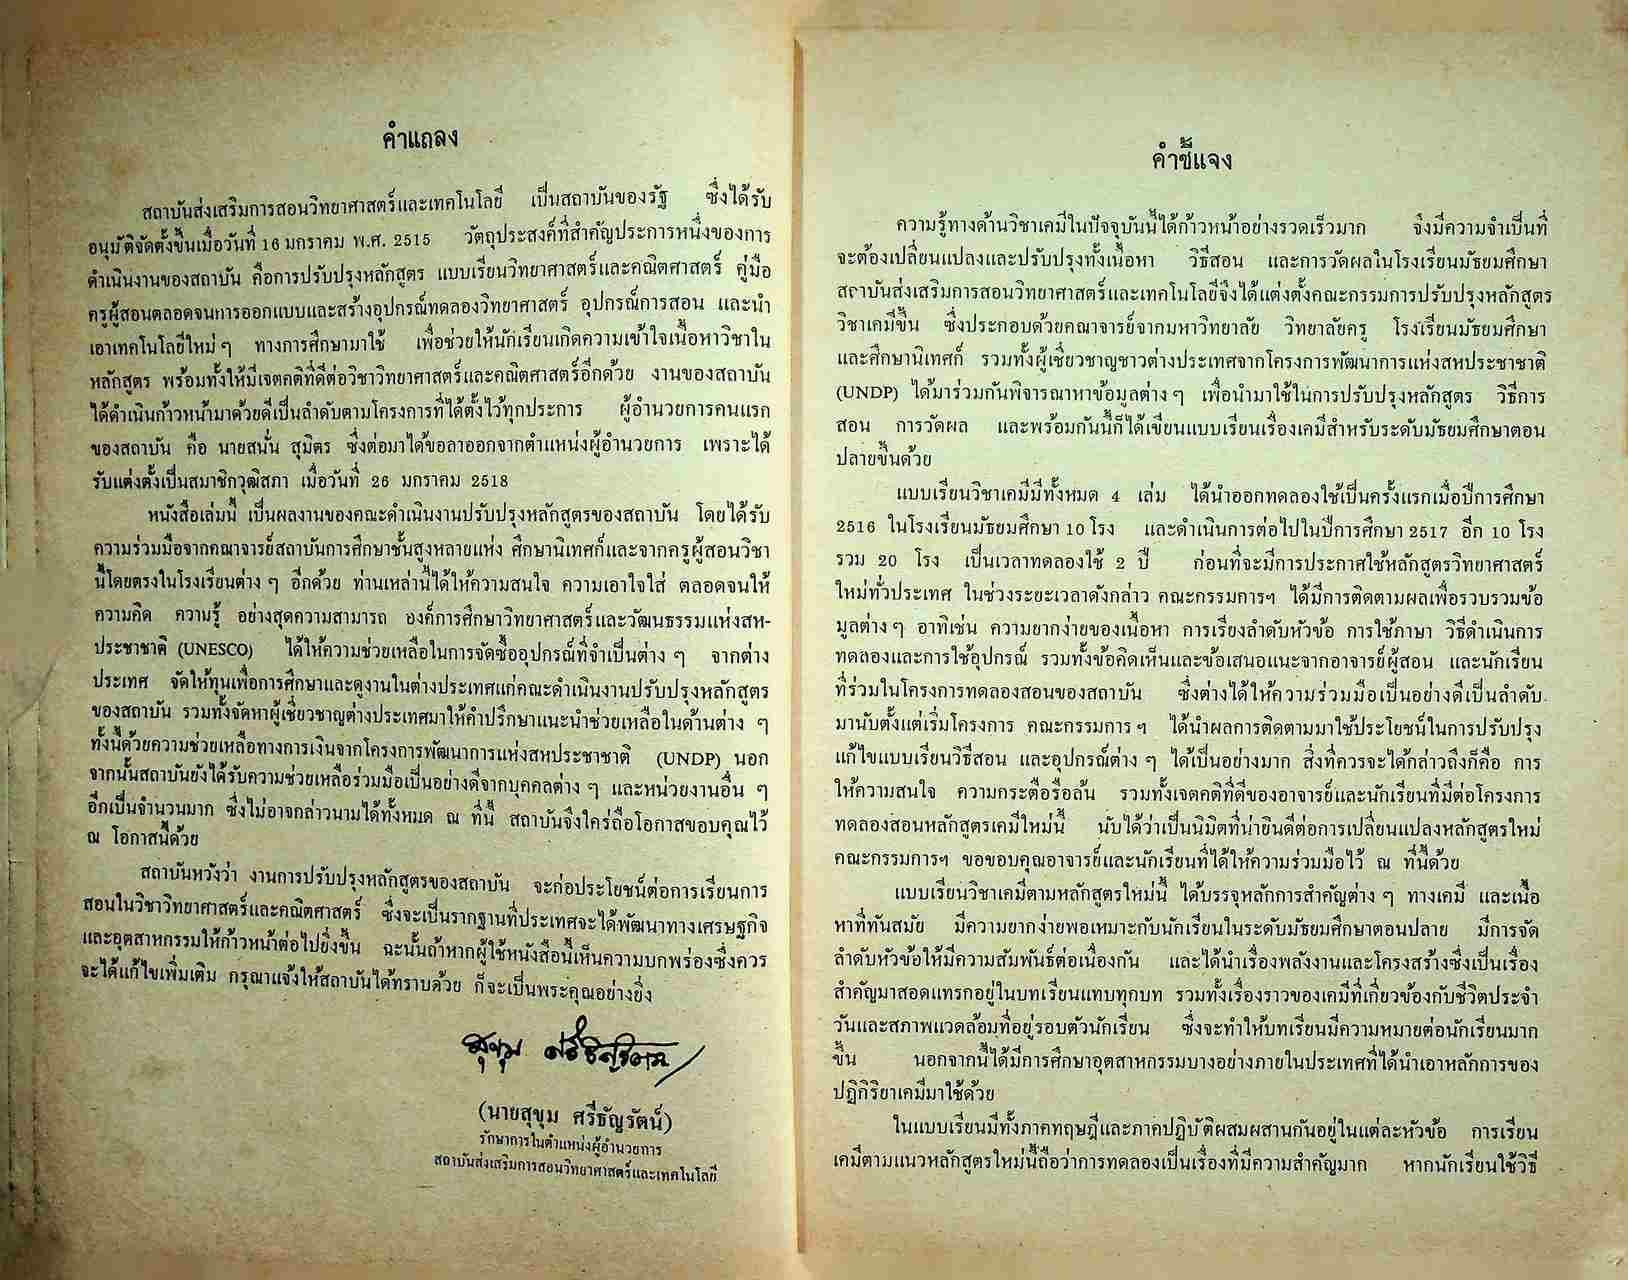 คำแถลง
สถาบันส่งเสริมการสอนวิทยาศาสตร์และเทคโนโลยี เป็นสถาบันของรัฐ ซึ่งได้รับ
อนุมัติจัดตั้งขึ้นเมื่อวันที่ 16 มกราคม พ.ศ. 2515 วัตถุประสงค์ที่สำคัญประการหนึ่งของการ
ดำเนินงานของสถาบัน คือการปรับปรุงหลักสูตร แบบเรียนวิทยาศาสตร์และคณิตศาสตร์ คู่มือ
ครูผู้สอนตลอดจนการออกแบบและสร้างอุปกรณ์ทดลองวิทยาศาสตร์ อุปกรณ์การสอน และนำ
เอาเทคโนโลยีใหม่ ๆ ทางการศึกษามาใช้ เพื่อช่วยให้นักเรียนเกิดความเข้าใจเนื้อหาวิชาใน
หลักสูตร พร้อมทั้งให้มีเจตคติที่ดีต่อวิชาวิทยาศาสตร์และคณิตศาสตร์อีกด้วย งานของสถาบัน
ได้ดำเนินก้าวหน้ามาด้วยดีเป็นลำดับตามโครงการที่ได้ตั้งไว้ทุกประการ ผู้อำนวยการคนแรก
ของสถาบัน คือ นายสนั่น สุมิตร ซึ่งต่อมาได้ขอลาออกจากตำแหน่งผู้อำนวยการ เพราะได้
รับแต่งตั้งเป็นสมาชิกวุฒิสภา เมื่อวันที่ 26 มกราคม 2518
หนังสือเล่มนี้ เป็นผลงานของคณะดำเนินงานปรับปรุงหลักสูตรของสถาบัน โดยได้รับ
ความร่วมมือจากคณาจารย์สถาบันการศึกษาชั้นสูงหลายแห่ง ศึกษานิเทศก์และจากครูผู้สอนวิชา
นี้โดยตรงในโรงเรียนต่าง ๆ อีกด้วย ท่านเหล่านี้ได้ให้ความสนใจ ความเอาใจใส่ ตลอดจนให้
ความคิด ความรู้ อย่างสุดความสามารถ องค์การศึกษาวิทยาศาสตร์และวัฒนธรรมแห่งสห-
ประชาชาติ (UNESCO) ได้ให้ความช่วยเหลือในการจัดซื้ออุปกรณ์ที่จำเป็นต่าง ๆ จากต่าง
ประเทศ จัดให้ทุนเพื่อการศึกษาและดูงานในต่างประเทศแก่คณะดำเนินงานปรับปรุงหลักสูตร
ของสถาบัน รวมทั้งจัดหาผู้เชี่ยวชาญต่างประเทศมาให้คำปรึกษาแนะนำช่วยเหลือในด้านต่าง ๆ
ทั้งนี้ด้วยความช่วยเหลือทางการเงินจากโครงการพัฒนาการแห่งสหประชาชาติ (UNDP) นอก
จากนั้นสถาบันยังได้รับความช่วยเหลือร่วมมือเป็นอย่างดีจากบุคคลต่าง ๆ และหน่วยงานอื่น ๆ
อีกเป็นจำนวนมาก ซึ่งไม่อาจกล่าวนามได้ทั้งหมด ณ ที่นี้ สถาบันจึงใคร่ถือโอกาสขอบคุณไว้
ณ โอกาสนี้ด้วย
สถาบันหวังว่า งานการปรับปรุงหลักสูตรของสถาบัน จะก่อประโยชน์ต่อการเรียนการ
สอนในวิชาวิทยาศาสตร์และคณิตศาสตร์ ซึ่งจะเป็นรากฐานที่ประเทศจะได้พัฒนาทางเศรษฐกิจ
และอุตสาหกรรมให้ก้าวหน้าต่อไปยิ่งขึ้น ฉะนั้นถ้าหากผู้ใช้หนังสือนี้เห็นความบกพร่องซึ่งควร
จะได้แก้ไขเพิ่มเติม กรุณาแจ้งให้สถาบันได้ทราบด้วย ก็จะเป็นพระคุณอย่างยิ่ง
สุขุม ศรีธัญรัตน์
(นายสุขุม ศรีธัญรัตน์)
รักษาการในตำแหน่งผู้อำนวยการ
สถาบันส่งเสริมการสอนวิทยาศาสตร์และเทคโนโลยี
คำชี้แจง
ความรู้ทางด้านวิชาเคมีในปัจจุบันนี้ได้ก้าวหน้าอย่างรวดเร็วมาก จึงมีความจำเป็นที่
จะต้องเปลี่ยนแปลงและปรับปรุงทั้งเนื้อหา วิธีสอน และการวัดผลในโรงเรียนมัธยมศึกษา
สถาบันส่งเสริมการสอนวิทยาศาสตร์และเทคโนโลยีจึงได้แต่งตั้งคณะกรรมการปรับปรุงหลักสูตร
วิชาเคมีขึ้น ซึ่งประกอบด้วยคณาจารย์จากมหาวิทยาลัย วิทยาลัยครู โรงเรียนมัธยมศึกษา
และศึกษานิเทศก์ รวมทั้งผู้เชี่ยวชาญชาวต่างประเทศจากโครงการพัฒนาการแห่งสหประชาชาติ
(UNDP) ได้มาร่วมกันพิจารณาหาข้อมูลต่าง ๆ เพื่อนำมาใช้ในการปรับปรุงหลักสูตร วิธีการ
สอน การวัดผล และพร้อมกันนี้ก็ได้เขียนแบบเรียนเรื่องเคมีสำหรับระดับมัธยมศึกษาตอน
ปลายขึ้นด้วย
แบบเรียนวิชาเคมีมีทั้งหมด 4 เล่ม ได้นำออกทดลองใช้เป็นครั้งแรกเมื่อปีการศึกษา
2516 ในโรงเรียนมัธยมศึกษา 10 โรง และดำเนินการต่อไปในปีการศึกษา 2517 อีก 10 โรง
รวม 20 โรง เป็นเวลาทดลองใช้ 2 ปี ก่อนที่จะมีการประกาศใช้หลักสูตรวิทยาศาสตร์
ใหม่ทั่วประเทศ ในช่วงระยะเวลาดังกล่าว คณะกรรมการฯ ได้มีการติดตามผลเพื่อรวบรวมข้อ
มูลต่าง ๆ อาทิเช่น ความยากง่ายของเนื้อหา การเรียงลำดับหัวข้อ การใช้ภาษา วิธีดำเนินการ
ทดลองและการใช้อุปกรณ์ รวมทั้งข้อคิดเห็นและข้อเสนอแนะจากอาจารย์ผู้สอน และนักเรียน
ที่ร่วมในโครงการทดลองสอนของสถาบัน ซึ่งต่างได้ให้ความร่วมมือเป็นอย่างดีเป็นลำดับ
มานับตั้งแต่เริ่มโครงการ คณะกรรมการ ฯ ได้นำผลการติดตามมาใช้ประโยชน์ในการปรับปรุง
แก้ไขแบบเรียนวิธีสอน และอุปกรณ์ต่าง ๆ ได้เป็นอย่างมาก สิ่งที่ควรจะได้กล่าวถึงก็คือ การ
ให้ความสนใจ ความกระตือรือล้น รวมทั้งเจตคติที่ดีของอาจารย์และนักเรียนที่มีต่อโครงการ
ทดลองสอนหลักสูตรเคมีใหม่นี้ นับได้ว่าเป็นนิมิตที่น่ายินดีต่อการเปลี่ยนแปลงหลักสูตรใหม่
คณะกรรมการฯ ขอขอบคุณอาจารย์และนักเรียนที่ได้ให้ความร่วมมือไว้ ณ ที่นี้ด้วย
แบบเรียนวิชาเคมีตามหลักสูตรใหม่นี้ ได้บรรจุหลักการสำคัญต่าง ๆ ทางเคมี และเนื้อ
หาที่ทันสมัย มีความยากง่ายพอเหมาะกับนักเรียนในระดับมัธยมศึกษาตอนปลาย มีการจัด
ลำดับหัวข้อให้มีความสัมพันธ์ต่อเนื่องกัน และได้นำเรื่องพลังงานและโครงสร้างซึ่งเป็นเรื่อง
สำคัญมาสอดแทรกอยู่ในบทเรียนแทบทุกบท รวมทั้งเรื่องราวของเคมีที่เกี่ยวข้องกับชีวิตประจำ
วันและสภาพแวดล้อมที่อยู่รอบตัวนักเรียน ซึ่งจะทำให้บทเรียนมีความหมายต่อนักเรียนมาก
ขึ้น นอกจากนี้ได้มีการศึกษาอุตสาหกรรมบางอย่างภายในประเทศที่ได้นำเอาหลักการของ
ปฏิกิริยาเคมีมาใช้ด้วย
ในแบบเรียนมีทั้งภาคทฤษฎีและภาคปฏิบัติผสมผสานกันอยู่ในแต่ละหัวข้อ การเรียน
เคมีตามแนวหลักสูตรใหม่นี้ถือว่าการทดลองเป็นเรื่องที่มีความสำคัญมาก หากนักเรียนใช้วิธี